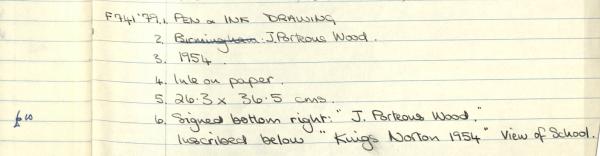 F741'79.1. PEN & INK DRAWING
2. Birmingham. J. Porteous Wood.
3. 1954.
4. Ink on paper.
5. 26.3 x 36.5 cms.
£10 6. Signed bottom right: "J. Porteous Wood."
Inscribed below "Kings Norton 1954" View of School.